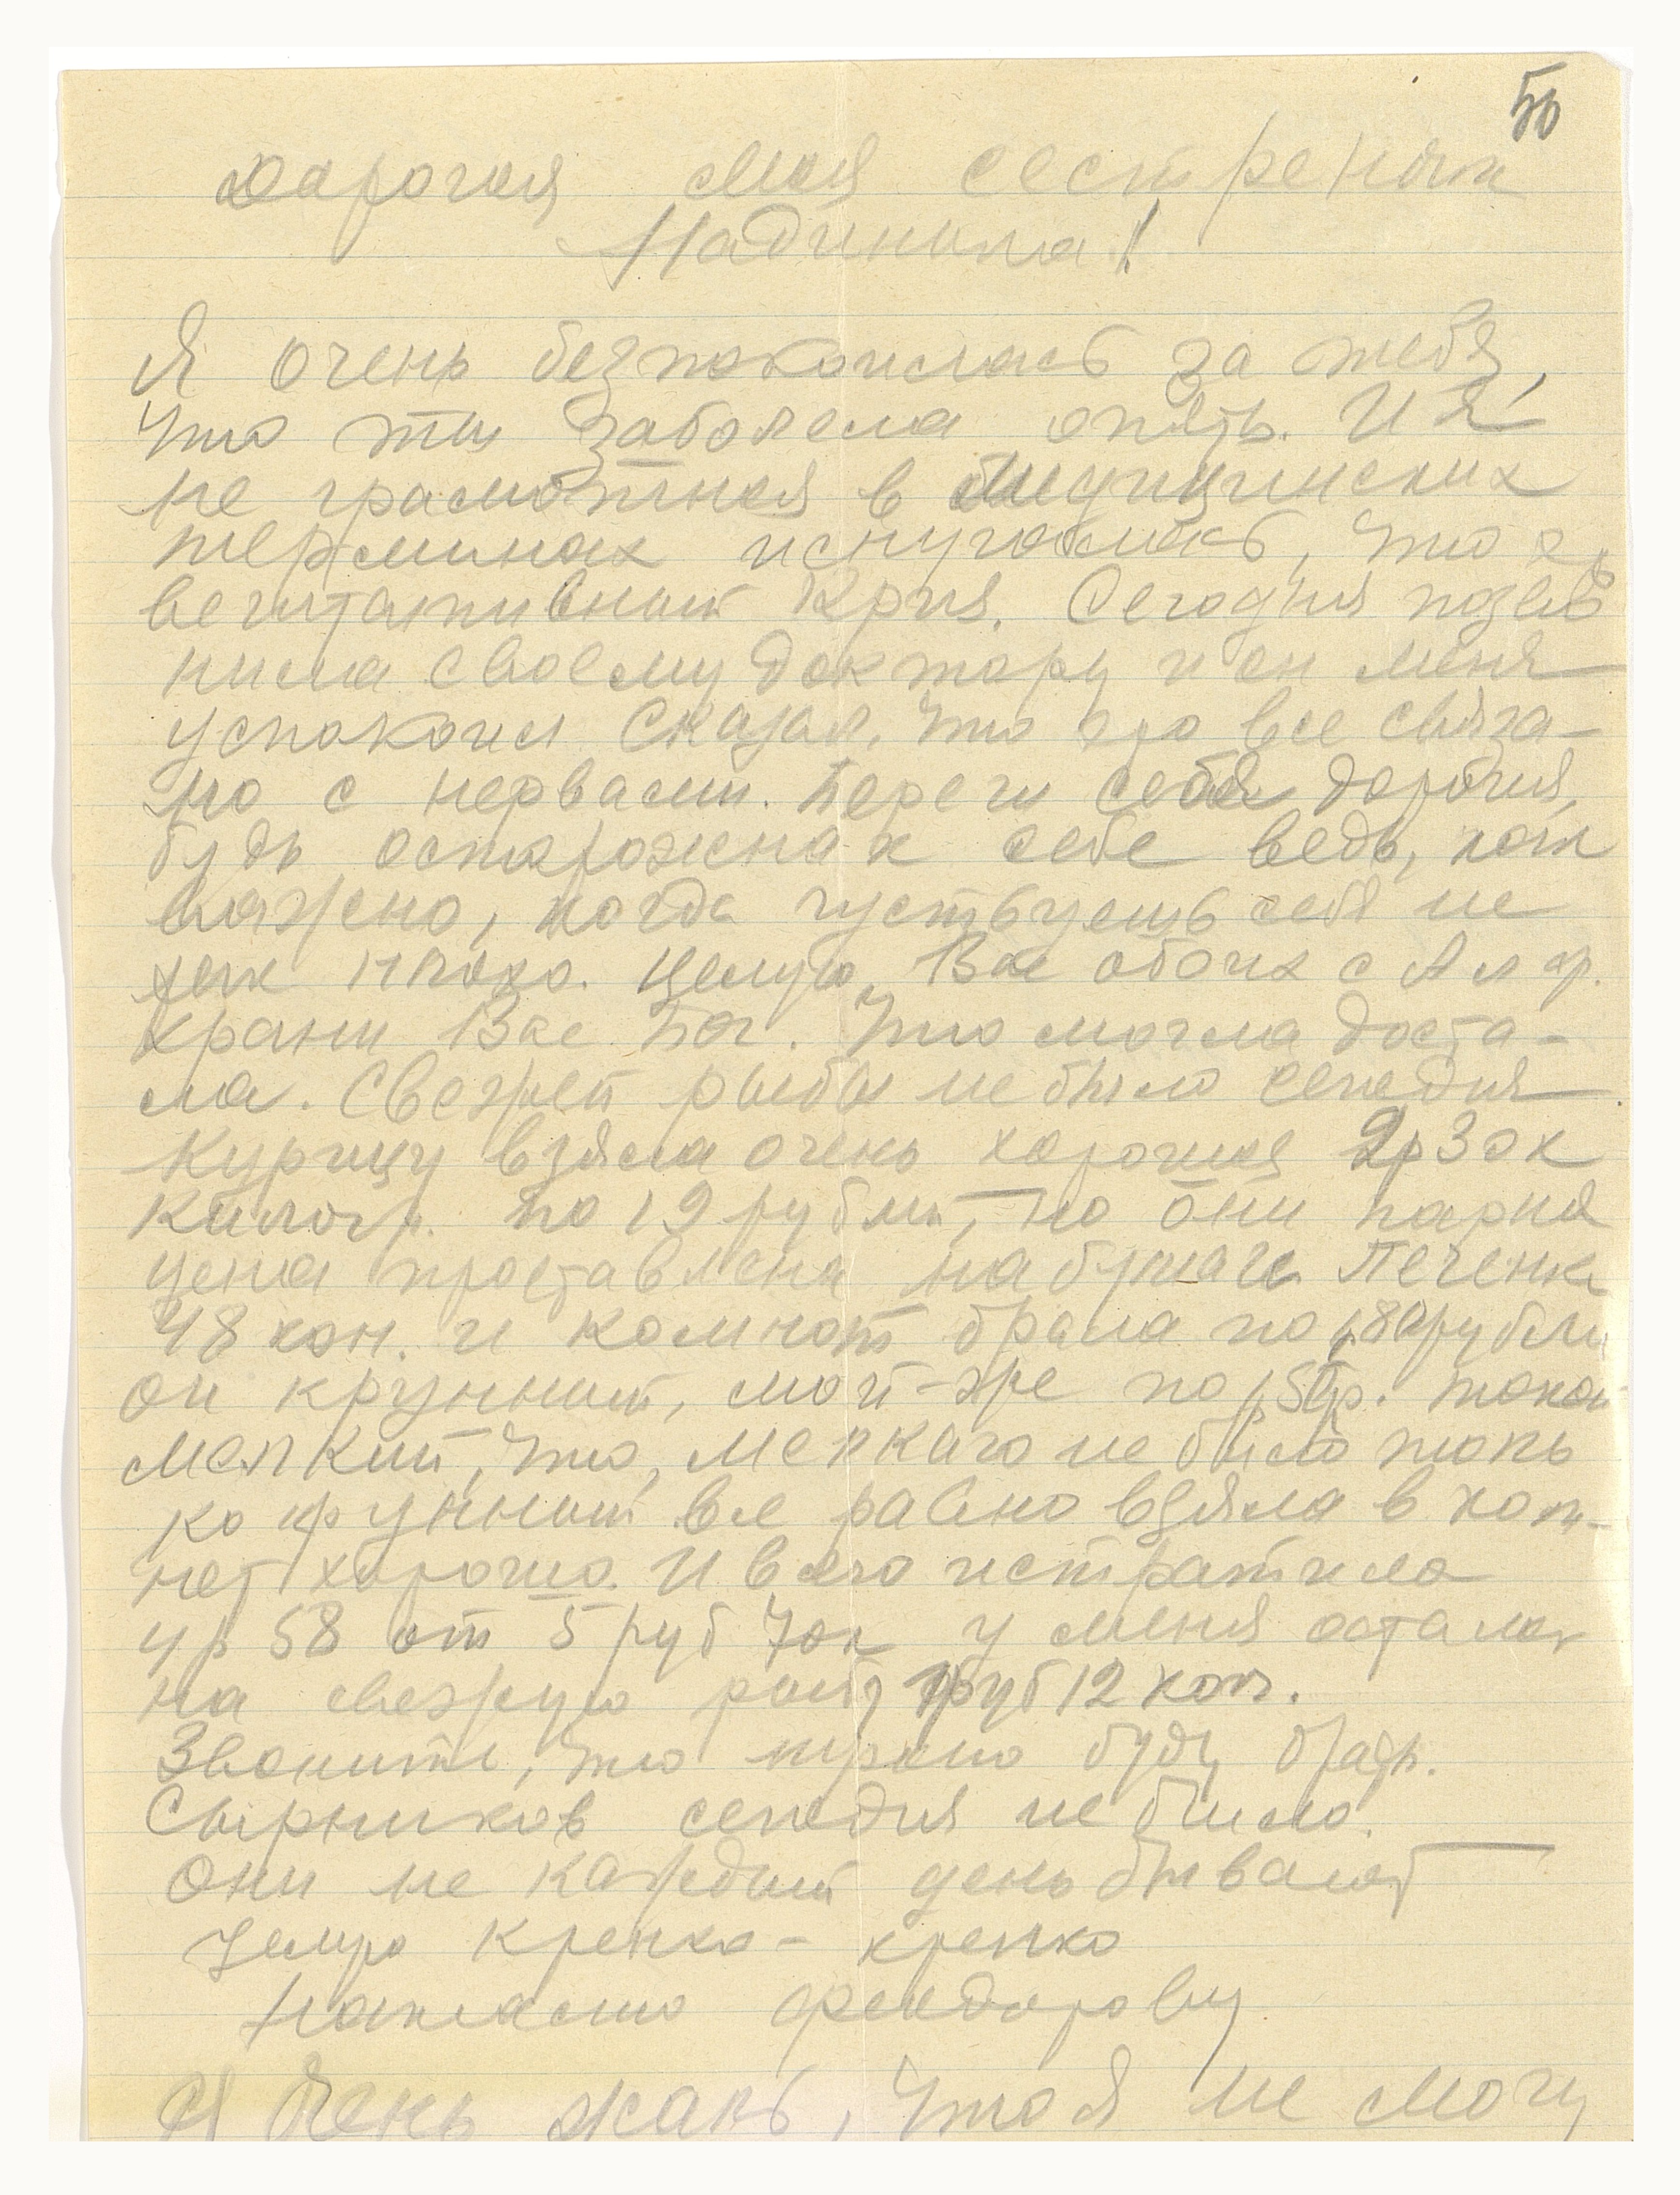 50
Дарогая моя сестреночк
Надинька!
Я очень безпокоилась за тебя,
что ты заболела опять. И я
не грамотная в медицинских
терминах испугалась, что э
вегитативный криз. Сегодня позво
нила своему доктору и он меня
успокоил сказал, что это все связа-
но с нервами. Береги себя дорогая,
будь осторожна к себе ведь,
важено, когда чуствуешь себя не
так плохо. Целую Вас обоих с Алф.
храни Вас Бог. Что могла доста-
ла. Свежей рыбы не было сегодня
Курицу взяла очень хорошая 2р 30к
Килогр. по 19 рубли, но они парня
цена проставлена на бумаге Печенка
48 коп. и компот брала по 1,80 рубли
он крупный, мой-же по 1,50р. такой
мелкий, что, мелкаго не было толь
ко крупный все равно взяла в ком-
пот хорошо. И всего истратила
4р 58 от 5 руб 70к у меня остало
на свежую рыбу 1руб 12 коп.
Звоните, что нужно буду брать.
Сырников сегодня не было.
Они не каждый день бывают
Целую крепко-крепко
Накламю Фендорову
Я очень жаль, что я не могу